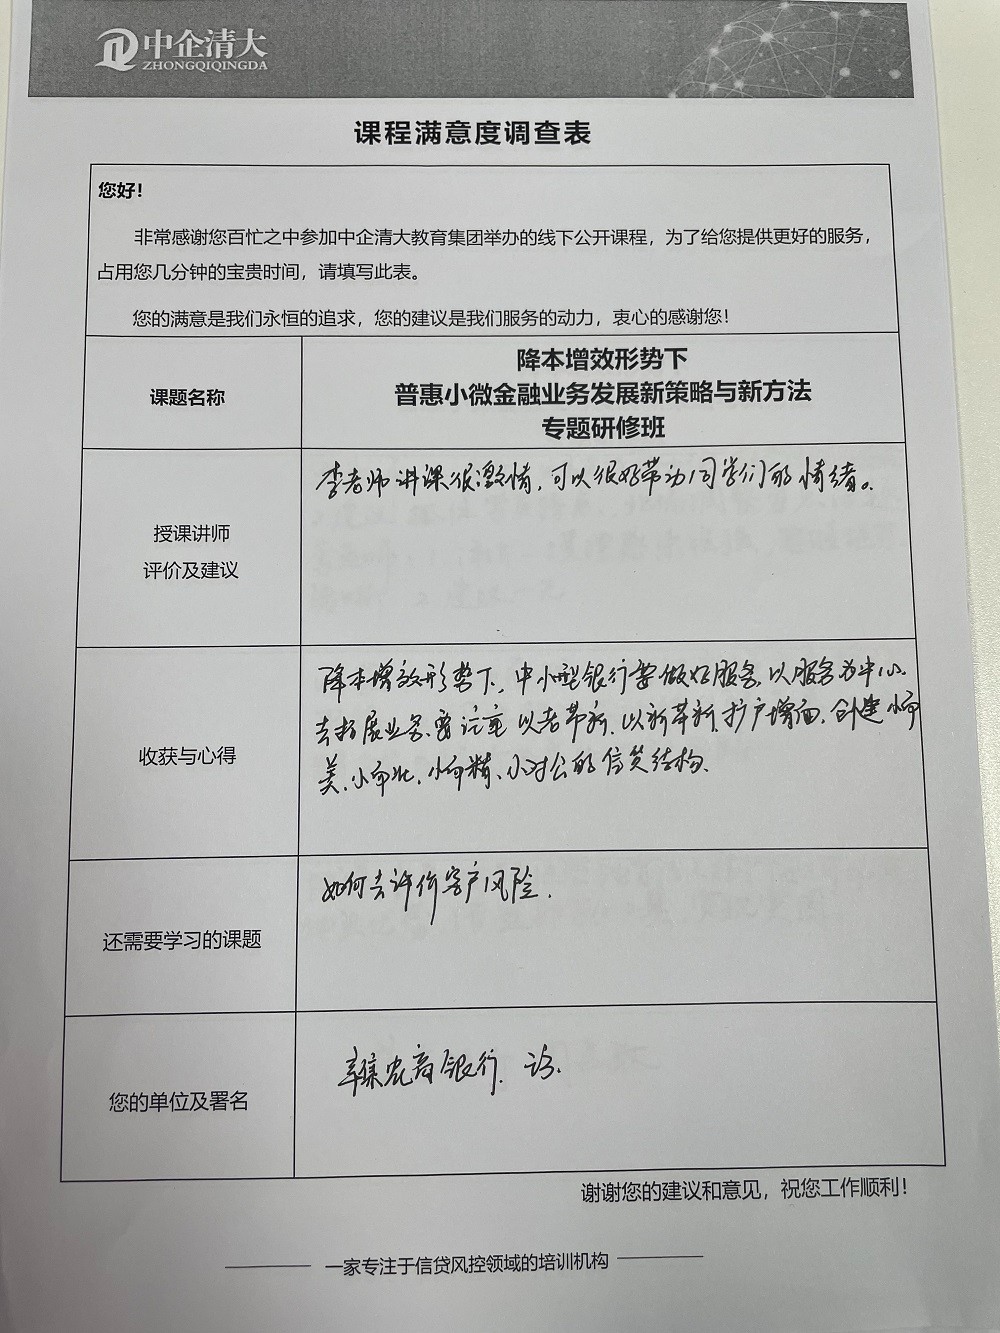 中企清大
ZHONGQIQINGDA
课程满意度调查表
您好！
非常感谢您百忙之中参加中企清大教育集团举办的线下公开课程，为了给您提供更好的服务，
占用您几分钟的宝贵时间，请填写此表。
您的满意是我们永恒的追求，您的建议是我们服务的动力，衷心的感谢您！
课题名称
降本增效形势下
普惠小微金融业务发展新策略与新方法
专题研修班
授课讲师
评价及建议
李老师讲课很激情，可以很好带动同学们的情绪。
收获与心得
降本增效形势下，中小型银行要做好服务，以服务为中心、
去拓展业务、要注重以老带新、以新革新、扩户增面，创建小而
美、小而比、小而精、小对公的信贷结构、
还需要学习的课题
如何去评价客户风险.
您的单位及署名
辛集农商银行.
谢谢您的建议和意见，祝您工作顺利！
一家专注于信贷风控领域的培训机构